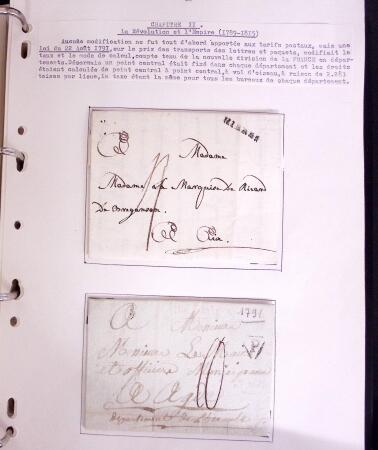 CHAPITRE II .
La Révolution et l'Empire (1789-1815)
Aucune modification ne fut tout d'abord apportée aux tarifs postaux, mais une
loi du 22 Août 1791, sur le prix des transports des lettres et paquets, modifiait le
taux et le mode de calcul, compte tenu de la nouvelle division de la FRANCE en dépar-
tements. Désormais un point central était fixé dans chaque département et les droits
étaient calculés de point central à point central, à vol d'oiseau, à raison de 2.283
toises par lieue, la taxe étant la même pour tous les bureaux de chaque département.
A Madame
Madame la Marquise De
A Aix.
1791
A Monsieur
Monsieur Le Maire
et officiers Municipaux
A
Département de